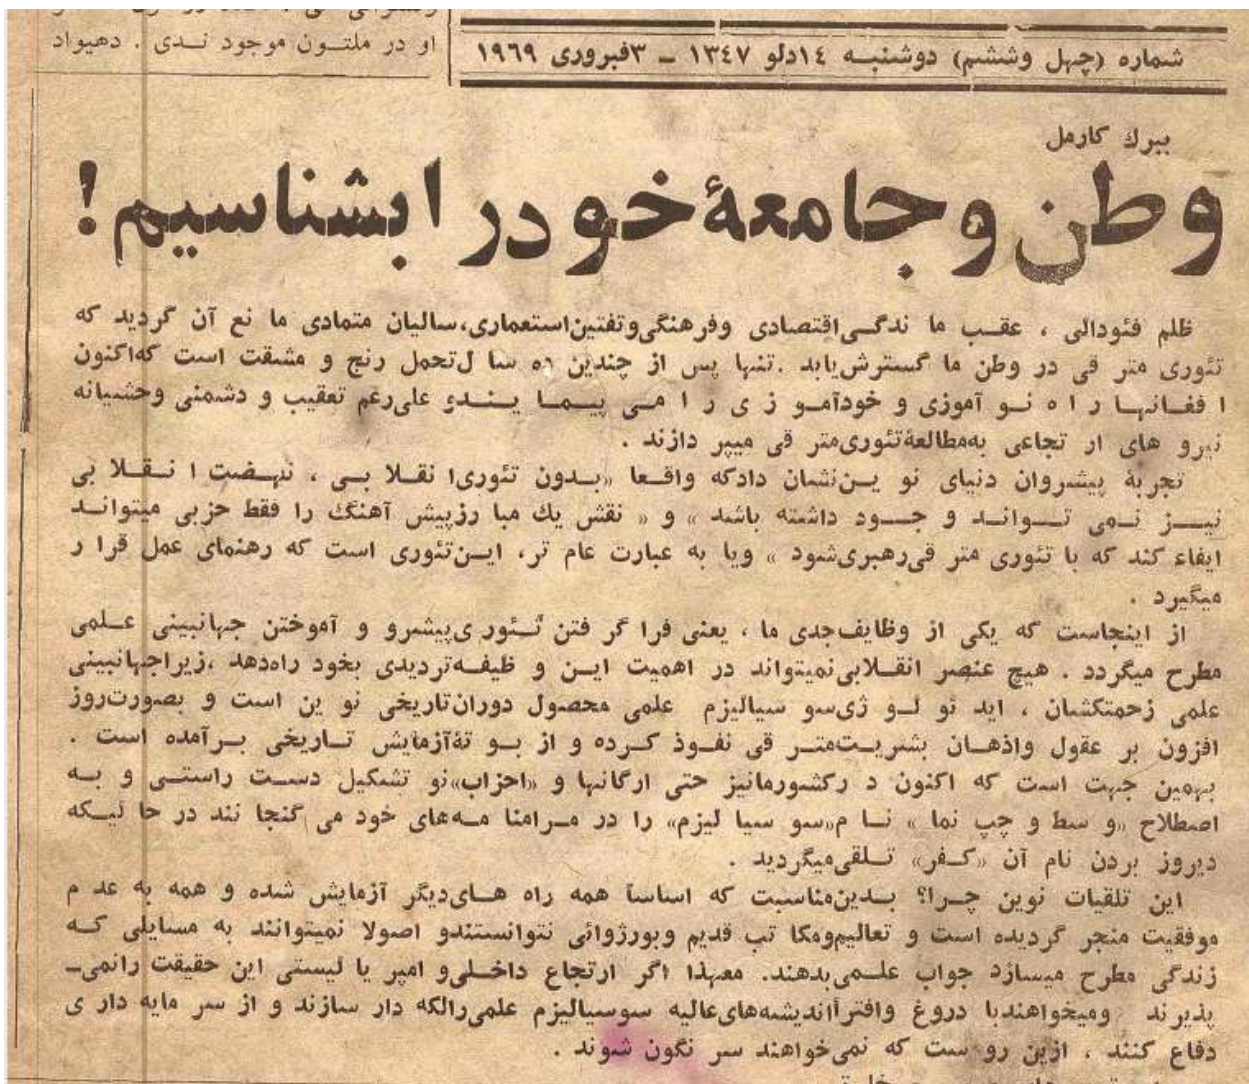 او در ملتــون موجود نــدی . دهیواد
شماره (چهل وششم) دوشنبــه ١٤دلو ١٣٤٧ ــ ٣فبروری ١٩٦٩
ببرك كارمل
وطن و جامعهٔ خود را بشناسیم!
ظلم فئودالی ، عقــب ما ندگــی اقتصادی وفرهنگی وتفتین استعماری، سالیان متمادی ما نع آن گردید که
تئوری متر قی در وطن ما گسترش یابد . تنها پس از چندین ده سا ل تحمل رنج و مشقت است که اکنون
ا فغــانهـا ر ا ه نــو آموزی و خودآمــو ز ی ر ا مــی پیــمــا ینــدو علی رغم تعقیب و دشمنی وحشیانه
نیرو های ار تجاعی به مطالعهٔ تئوری متر قی میپر دازند .
تجربهٔ پیشروان دنیای نو یــن نشان داد که واقــعا «بــدون تئوری ا نقلا بــی ، نهــضت ا نــقلا بی
نیــــز نــمی تــــوانــد و جــــود داشته باشد » و « نقش یك مبا رز پیش آهنگ را فقط حزبی میتوانــد
ایفاء کند که با تئوری متر قی رهبری شود » ویا به عبارت عام تر، ایــن تئوری است که رهنمای عمل قرا ر
میگیرد .
از اینجاست که یکی از وظایف جدی ما ، یعنی فرا گر فتن تــئور ی پیشرو و آموختن جهانبینی علــمی
مطرح میگردد . هیچ عنصر انقلابی نمیتواند در اهمیت ایــن و ظیفــه تردیدی بخود راه دهد ، زیرا جهانبینی
علمی زحمتکشان ، اید ئو لــو ژی سو سیالیزم علمی محصول دوران تاریخی نو ین است و بصورت روز
افزون بر عقول واذهــان بشریــت متــر قی نفــوذ کــرده و از بــو تهٔ آزمایش تــاریخی بــرآمده است .
بهمین جهت است که اکنون د ر کشور ما نیز حتی ارگانها و «احزاب» نو تشکیل دســت راستــی و بــه
اصطلاح «و سط و چپ نما » نــا م «سو سیا لیزم» را در مــرامنا مــه های خود می گنجا نند در حا لیــکه
دیروز بردن نام آن «کــفر» تــلقی میگردید .
این تلقیات نوین چــرا؟ بــدین مناسبت که اساساً همه راه هــای دیگر آزمایش شده و همه به عد م
موفقیت منجر گردیده است و تعالیم ومکا تب قدیم وبورژوائی نتوانستند و اصولا نمیتوانند به مسایلی کــه
زندگی مطرح میسازد جواب علــمی بدهند. معهذا اگر ارتجاع داخلــی و امپر یا لیستی این حقیقت را نمی‌ــ
پذیر ند ومیخواهند با دروغ وافترأ اندیشه های عالیه سوسیالیزم علمی را لکه دار سازند و از سر مایه دار ی
دفاع کنند ، ازین رو ست که نمی خواهند سر نگون شوند .